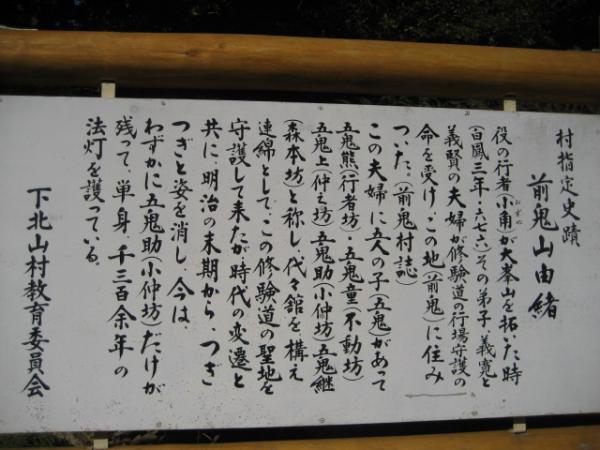 村指定史蹟
前鬼山由緒
役の行者(小角)が大峯山を拓いた時
(白鳳三年・六七六)その弟子、義寛と
義賢の夫婦が修験道の行場守護の
命を受け、この地(前鬼)に住み
ついた。(前鬼村誌)
この夫婦に五人の子(五鬼)があって
五鬼熊(行者坊)・五鬼童(不動坊)
五鬼上(仲之坊)五鬼助(小仲坊)五鬼継
(森本坊)と称し、代々舘を構え
連綿として、この修験道の聖地を
守護して来たが、時代の変遷と
共に、明治の末期から、つぎ
つぎと姿を消し、今は、
わずかに五鬼助(小仲坊)だけが
残って、単身、千三百余年の
法灯を護っている。
下北山村教育委員会